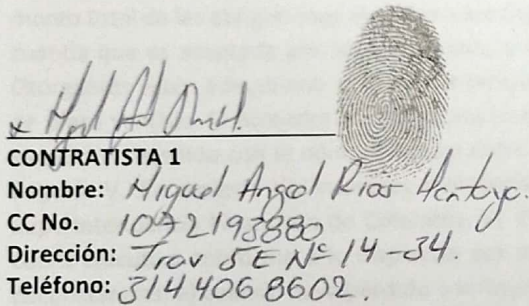 CONTRATISTA 1
Nombre: Miguel Angel Rios Montoya.
CC No. 1072193880
Dirección: Trav 5E Nº 14-34.
Teléfono: 3144068602.